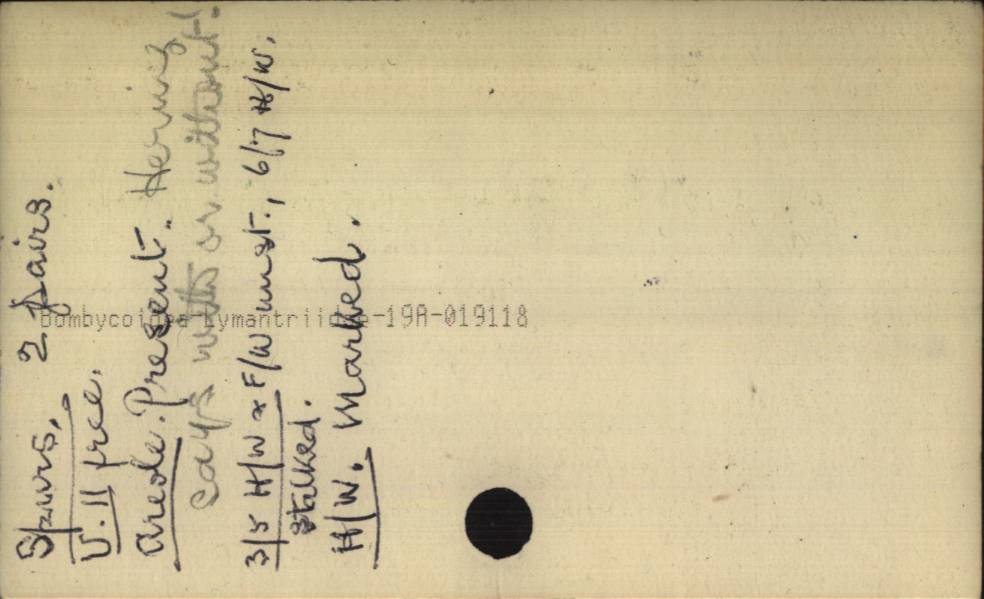 Spurs. 2 pairs.
V. 11 free.
Areole. Present. Hering
says with or without!
3/5 H/W & F/W unst., 6/7 H/W.
stalked.
H/W. Marked.
Bombycoidea Lymantriidae-19A-019118